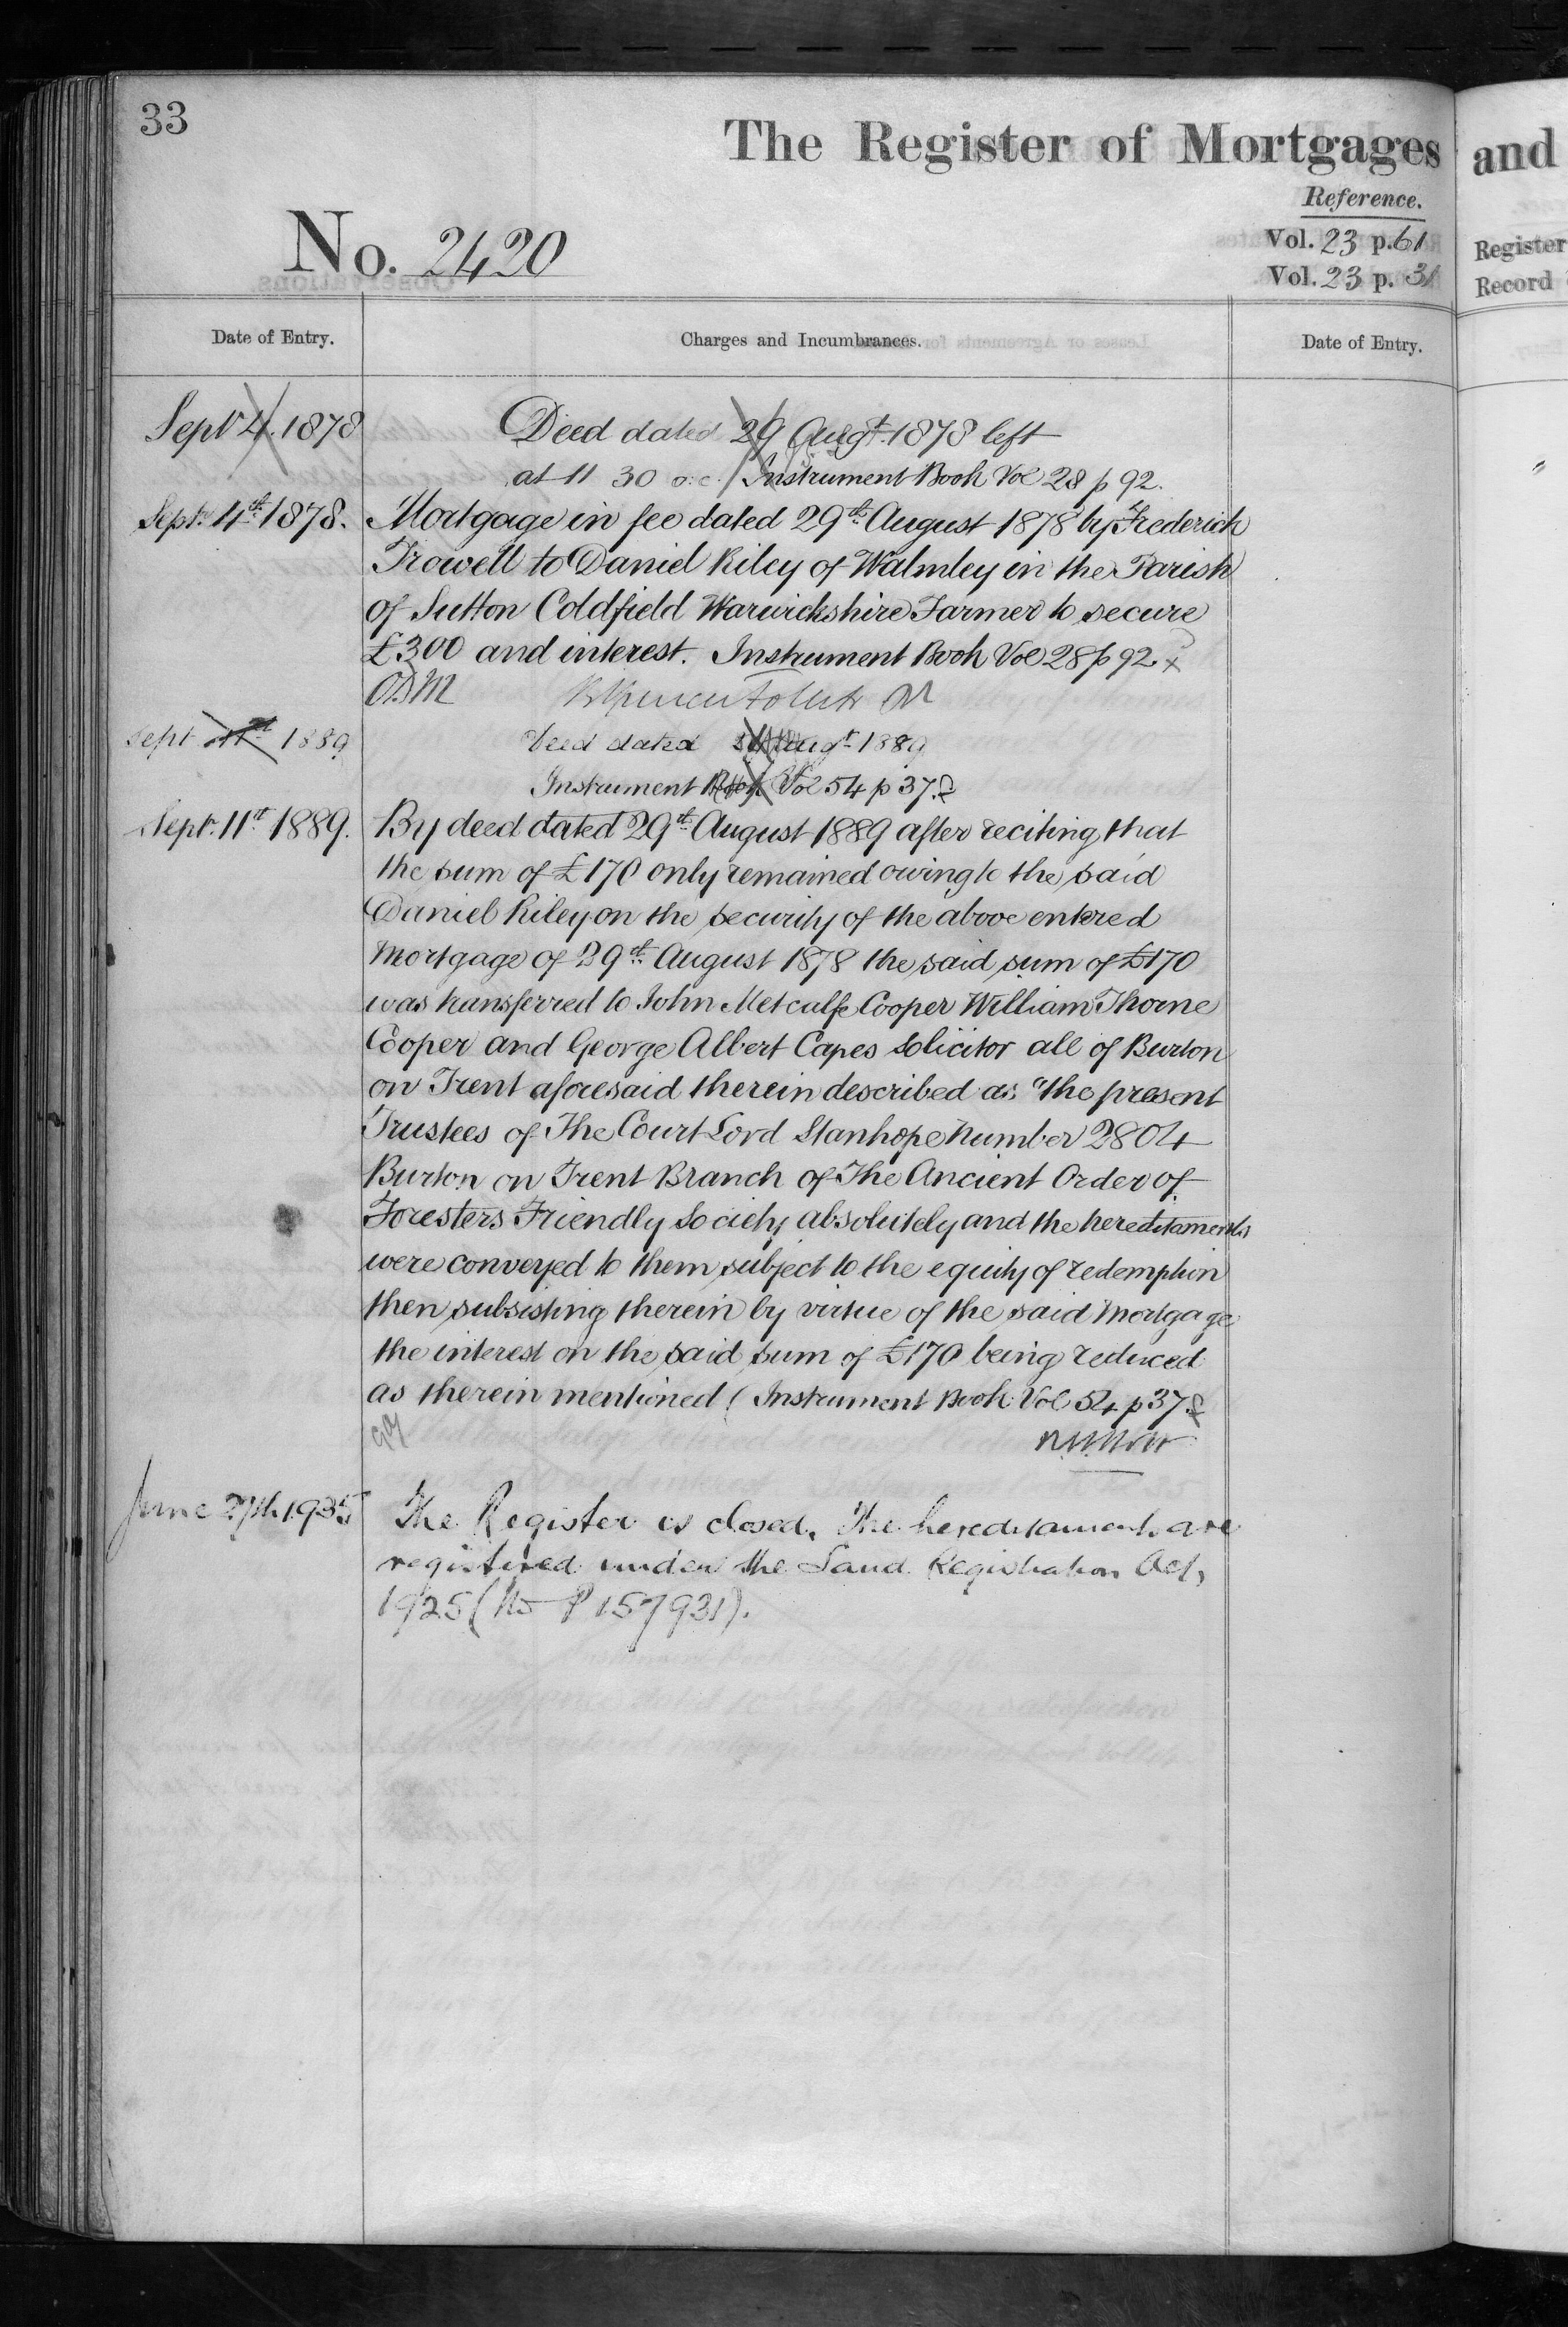 33
The Register of Mortgages and
Reference.
No. 2420
Vol. 23 p. 61
Register
Vol. 23 p. 31
Record
Date of Entry.
Charges and Incumbrances.
Date of Entry.
Sept 4. 1878
Deed dated 29 Augt. 1878 left
at 11 30 o.c. Instrument Book Vol 28 p 92.
Sept. 4th 1878.
Mortgage in fee dated 29th August 1878 by Frederick
Trowell to Daniel Riley of Walmley in the Parish
of Sutton Coldfield Warwickshire Farmer to secure
£300 and interest. Instrument Book Vol 28 p 92.
Sept 11th 1889
Deed dated Augt 1889
Instrument Book Vol 54 p 37.
Sept. 11th 1889.
By deed dated 29th August 1889 after reciting that
the sum of £170 only remained owing to the said
Daniel Riley on the security of the above entered
Mortgage of 29th August 1878 the said sum of £170
was transferred to John Metcalfe Cooper William Thorne
Cooper and George Albert Capes Solicitor all of Burton
on Trent aforesaid therein described as "the present
Trustees of The Court Lord Stanhope Number 2804
Burton on Trent Branch of The Ancient Order of
Foresters Friendly Society absolutely and the hereditaments
were conveyed to them subject to the equity of redemption
then subsisting therein by virtue of the said Mortgage
the interest on the said sum of £170 being reduced
as therein mentioned (Instrument Book Vol 54 p 37.
June 27th 1935
The Register is closed. The hereditaments are
registered under the Land Registration Act,
1925 (No P 157931).